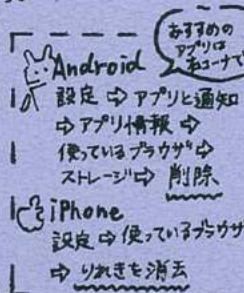 おすすめの
アプリは
右コーナで
Android
設定 ⇨ アプリと通知
⇨ アプリ情報 ⇨
使っているブラウザ ⇨
ストレージ ⇨ 削除
iPhone
設定 ⇨ 使っているブラウザ
⇨ りれきを消去